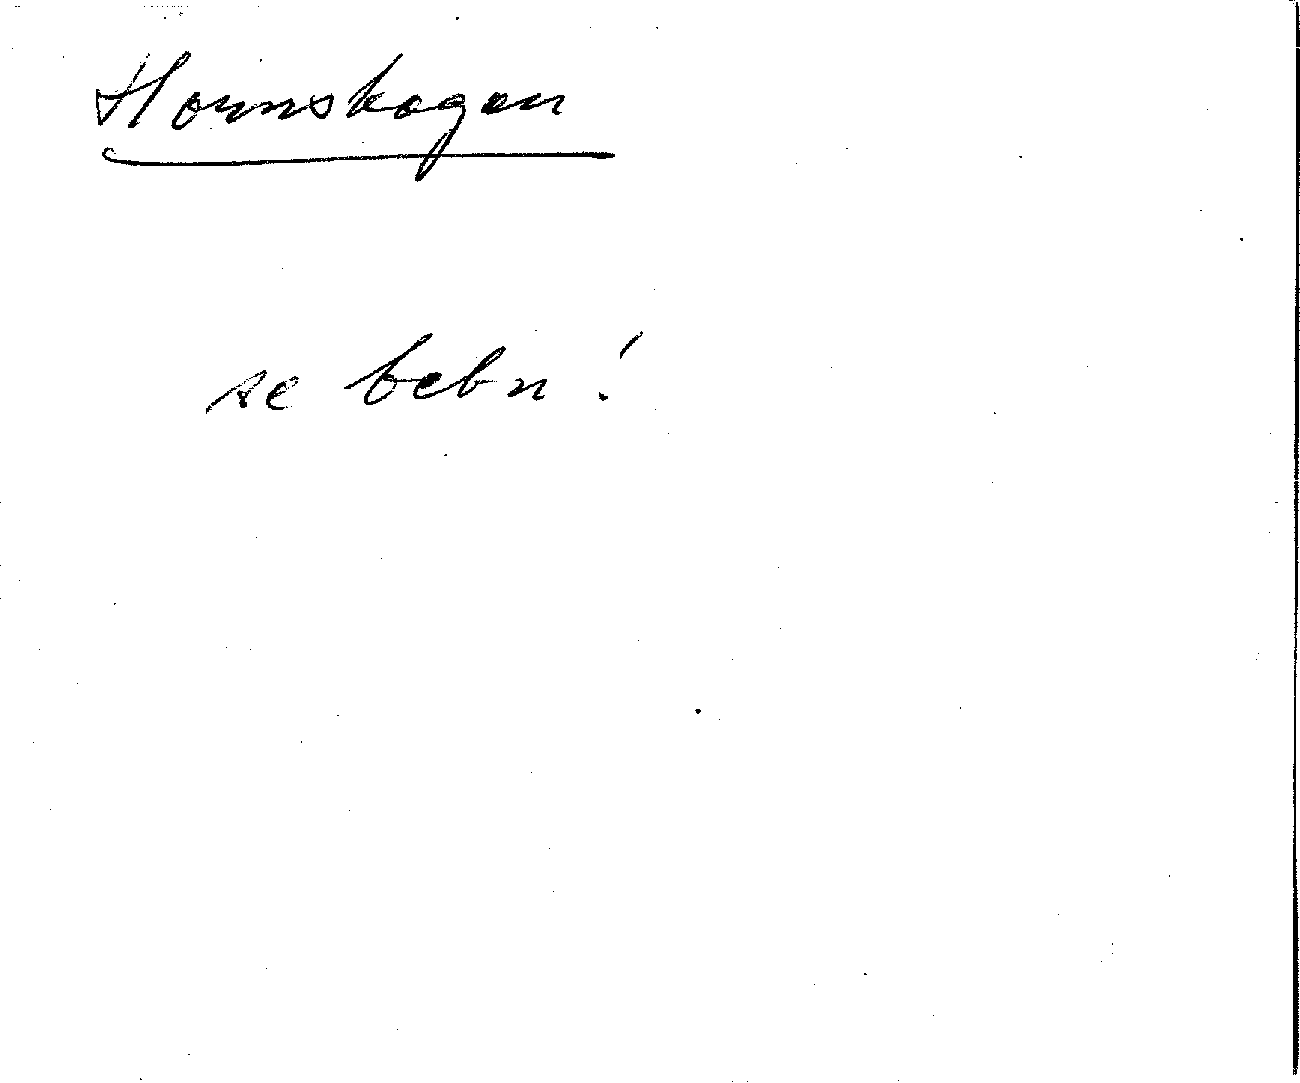 Hornskogen
se bebn!